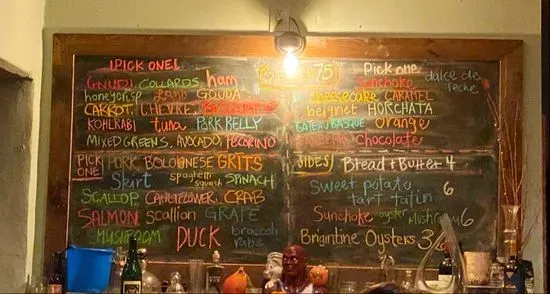 1PICK ONE!
GNUDI COLLARDS ham
honeycrisp lamb GOUDA
CARROT CHEVRE
KOHLRABI tuna PORK BELLY
MIXED GREENS, AVOCADO, PECORINO
PICK ONE PORK BOLOGNESE GRITS
Skirt spaghetti squash SPINACH
SCALLOP CAULIFLOWER CRAB
SALMON scallion GRAPE
MUSHROOM DUCK broccoli rabe
75
Pick one
Sunchoke dulce de leche
cheesecake CARAMEL
beignet HORCHATA
GATEAU BASQUE orange
chocolate
SIDES) Bread + Butter 4
Sweet potato tart tatin 6
Sunchoke oyster Mushroom 6
Brigantine Oysters 3/